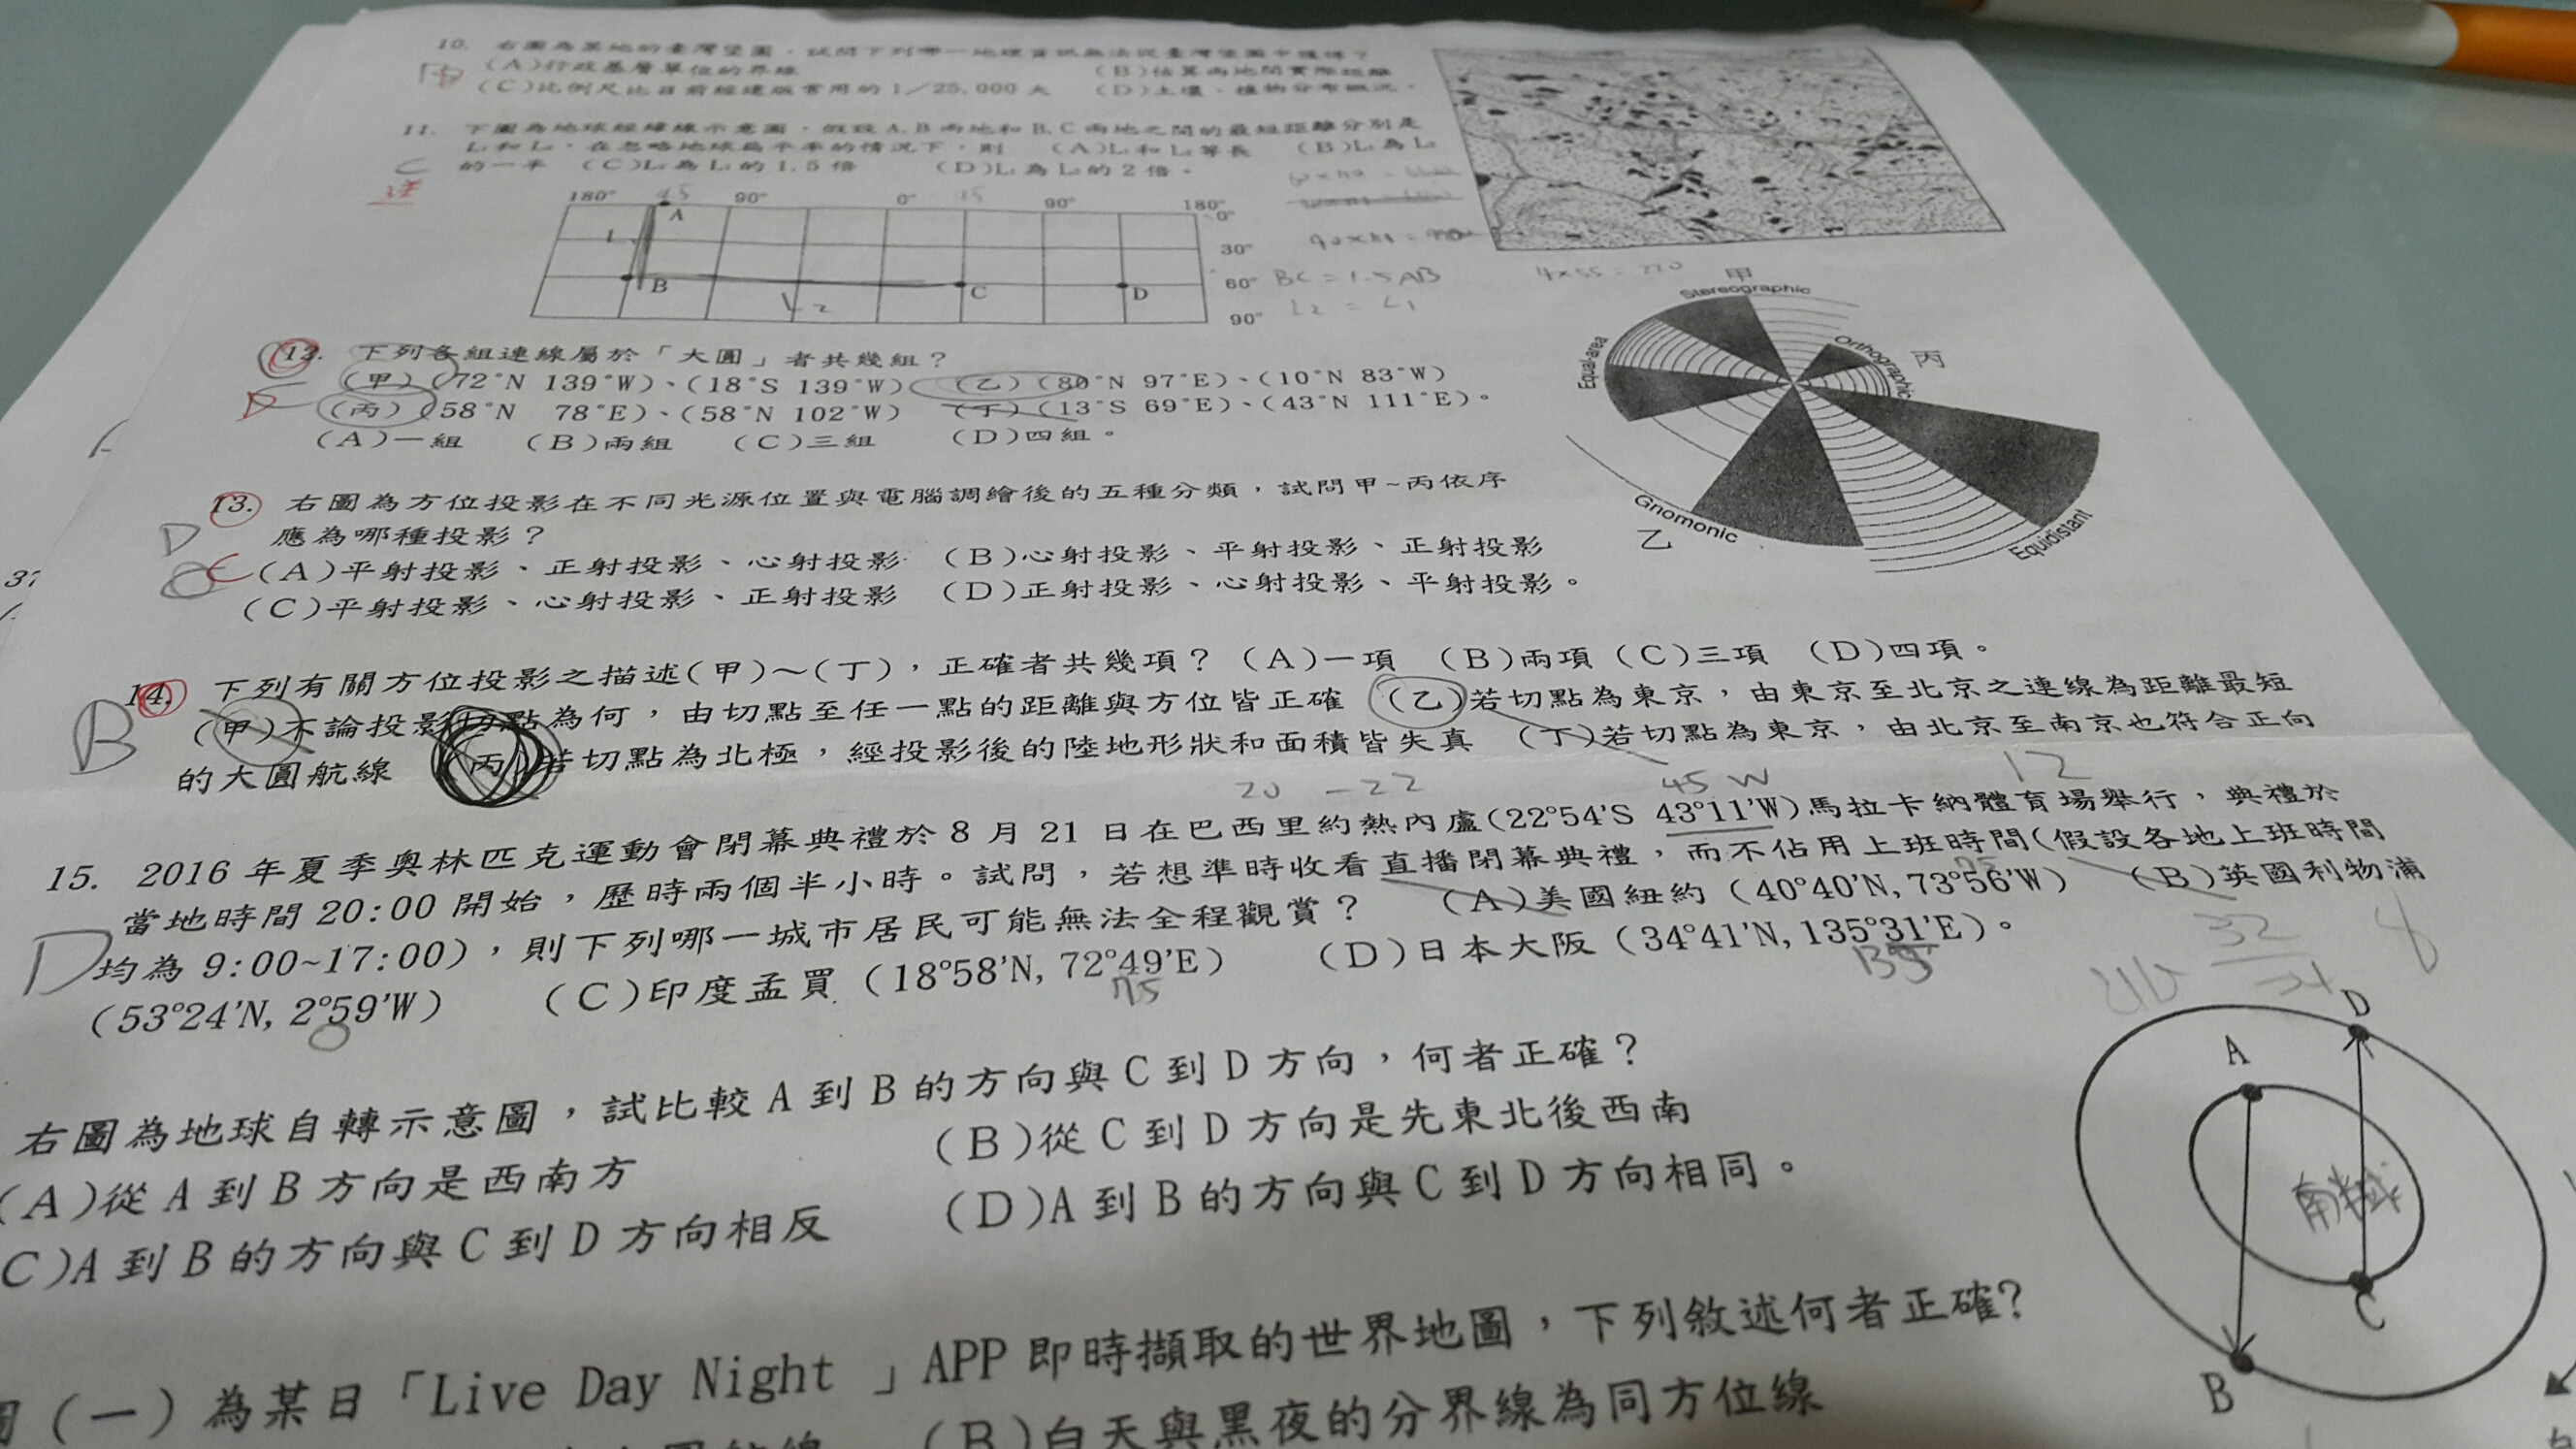 10. 右圖為某地的臺灣堡圖，試問下列哪一地理資訊無法從臺灣堡圖中獲得？
(A)行政基層單位的界線 (B)估算兩地間實際距離
(C)比例尺比目前經建版常用的1／25,000大 (D)土壤、植物分布概況。
11. 下圖為地球經緯線示意圖，假設A,B兩地和B,C兩地之間的最短距離分別是
L₁和L₂，在忽略地球扁平率的情況下，則 (A)L₁和L₂等長 (B)L₁為L₂
的一半 (C)L₂為L₁的1.5倍 (D)L₁為L₂的2倍。
C
180° 45 90° 0° 15 90° 180°
A 0°
30°
B C D 60°
90°
L2
BC = 1.5AB
L2 = L1
4×55 = 220
甲
Stereographic
Orthographic
丙
Equal-area
Gnomonic
乙
Equidistant
12. 下列各組連線屬於「大圓」者共幾組？
(甲)(72°N 139°W)、(18°S 139°W) (乙)(80°N 97°E)、(10°N 83°W)
(丙)(58°N 78°E)、(58°N 102°W) (丁)(13°S 69°E)、(43°N 111°E)。
(A)一組 (B)兩組 (C)三組 (D)四組。
13. 右圖為方位投影在不同光源位置與電腦調繪後的五種分類，試問甲~丙依序
應為哪種投影？
D
C
(A)平射投影、正射投影、心射投影 (B)心射投影、平射投影、正射投影
(C)平射投影、心射投影、正射投影 (D)正射投影、心射投影、平射投影。
14. 下列有關方位投影之描述(甲)～(丁)，正確者共幾項？(A)一項 (B)兩項 (C)三項 (D)四項。
B
(甲)不論投影切點為何，由切點至任一點的距離與方位皆正確 (乙)若切點為東京，由東京至北京之連線為距離最短
的大圓航線 (丙)若切點為北極，經投影後的陸地形狀和面積皆失真 (丁)若切點為東京，由北京至南京也符合正向
20 -22 45 W 12
15. 2016年夏季奧林匹克運動會閉幕典禮於8月21日在巴西里約熱內盧(22°54'S 43°11'W)馬拉卡納體育場舉行，典禮於
當地時間20:00開始，歷時兩個半小時。試問，若想準時收看直播閉幕典禮，而不佔用上班時間(假設各地上班時間
均為9:00~17:00)，則下列哪一城市居民可能無法全程觀賞？ (A)美國紐約(40°40'N, 73°56'W) (B)英國利物浦
(53°24'N, 2°59'W) (C)印度孟買(18°58'N, 72°49'E) (D)日本大阪(34°41'N, 135°31'E)。
D
0 75 135 75
32
右圖為地球自轉示意圖，試比較A到B的方向與C到D方向，何者正確？
(A)從A到B方向是西南方 (B)從C到D方向是先東北後西南
(C)A到B的方向與C到D方向相反 (D)A到B的方向與C到D方向相同。
D
A
南半球
C
B
圖（一）為某日「Live Day Night 」APP即時擷取的世界地圖，下列敘述何者正確?
(B)白天與黑夜的分界線為同方位線